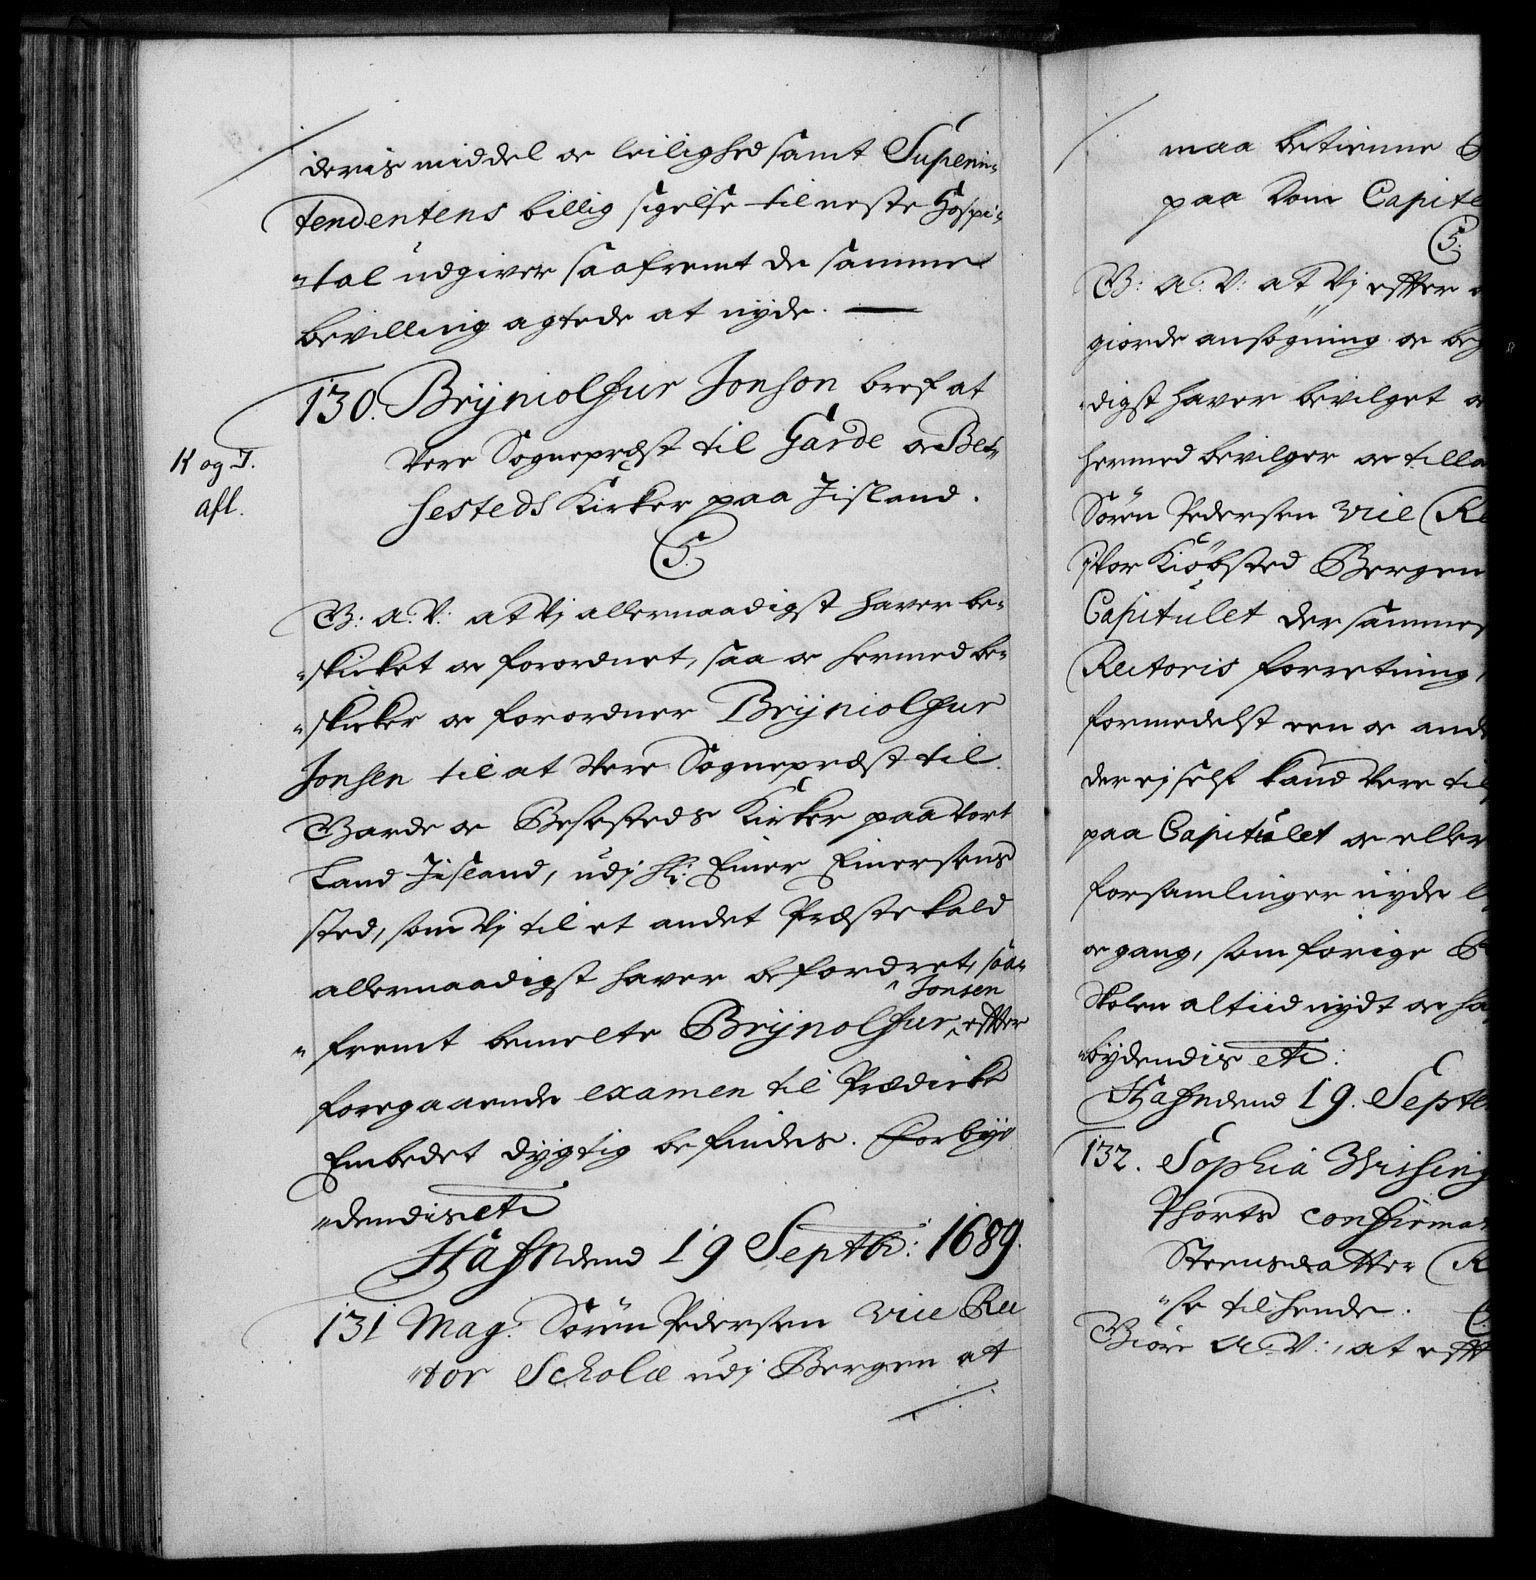 deris middel oc leilighed samt Superin-
tendentens billig sigelse til neste Hospi-
-tal udgiver saafremt de samme
bevilling agtede at nyde. —
130. Brÿniolfur Jonson bref at
Vere Sognepræst til Garde oc Bes-
sesteds Kirker paa Jisland.
K og I.
afl.
C5.
G: A: V: at Vj allernaadigst hafver be-
-skicket oc forordnet, saa oc hermed be-
-skicker oc forordner Brÿniolfur
Jonsen til at Vere Sognepræst til
Garde oc Besesteds Kirker paa Vort
Land Jisland, udj Hr: Einer Einersens
sted, som Vj til et andet Præstekald
allernaadigst hafver befordret, saa-
-fremt bemelte Brÿnolfur ^Jonsen efter
foregaaende examen til Prædicke
Embedet dygtig befindes. Forbÿ-
-dendis etc
Hafn dend 19 Septbr: 1689.
131 Mag: Sören Pedersen Vice Rec
-tor Scholæ udj Bergen at
maa betienne
paa Dom Capite
C5.
G: A: V: at Vj efter
giorde ansögning oc beg
-digst hafver bevilget oc
hermed bevilger oc tilla
Sören Pedersen Vice Re
j Vor Kiöbsted Bergen
Capitulet der sammes
Rectoris forretning,
formedelst een oc and
der ej self kand Vere til
paa Capitulet oc eller
forsamlinger nyde
oc gang, som forige
Skolen altiid nydt oc ha
-bÿdendis etc:
Hafn dend 19. Septe
132. Sophia Wissing
Phorts confirma
Steensdatter
-se tilhende.
Giöre A: V:, at eft